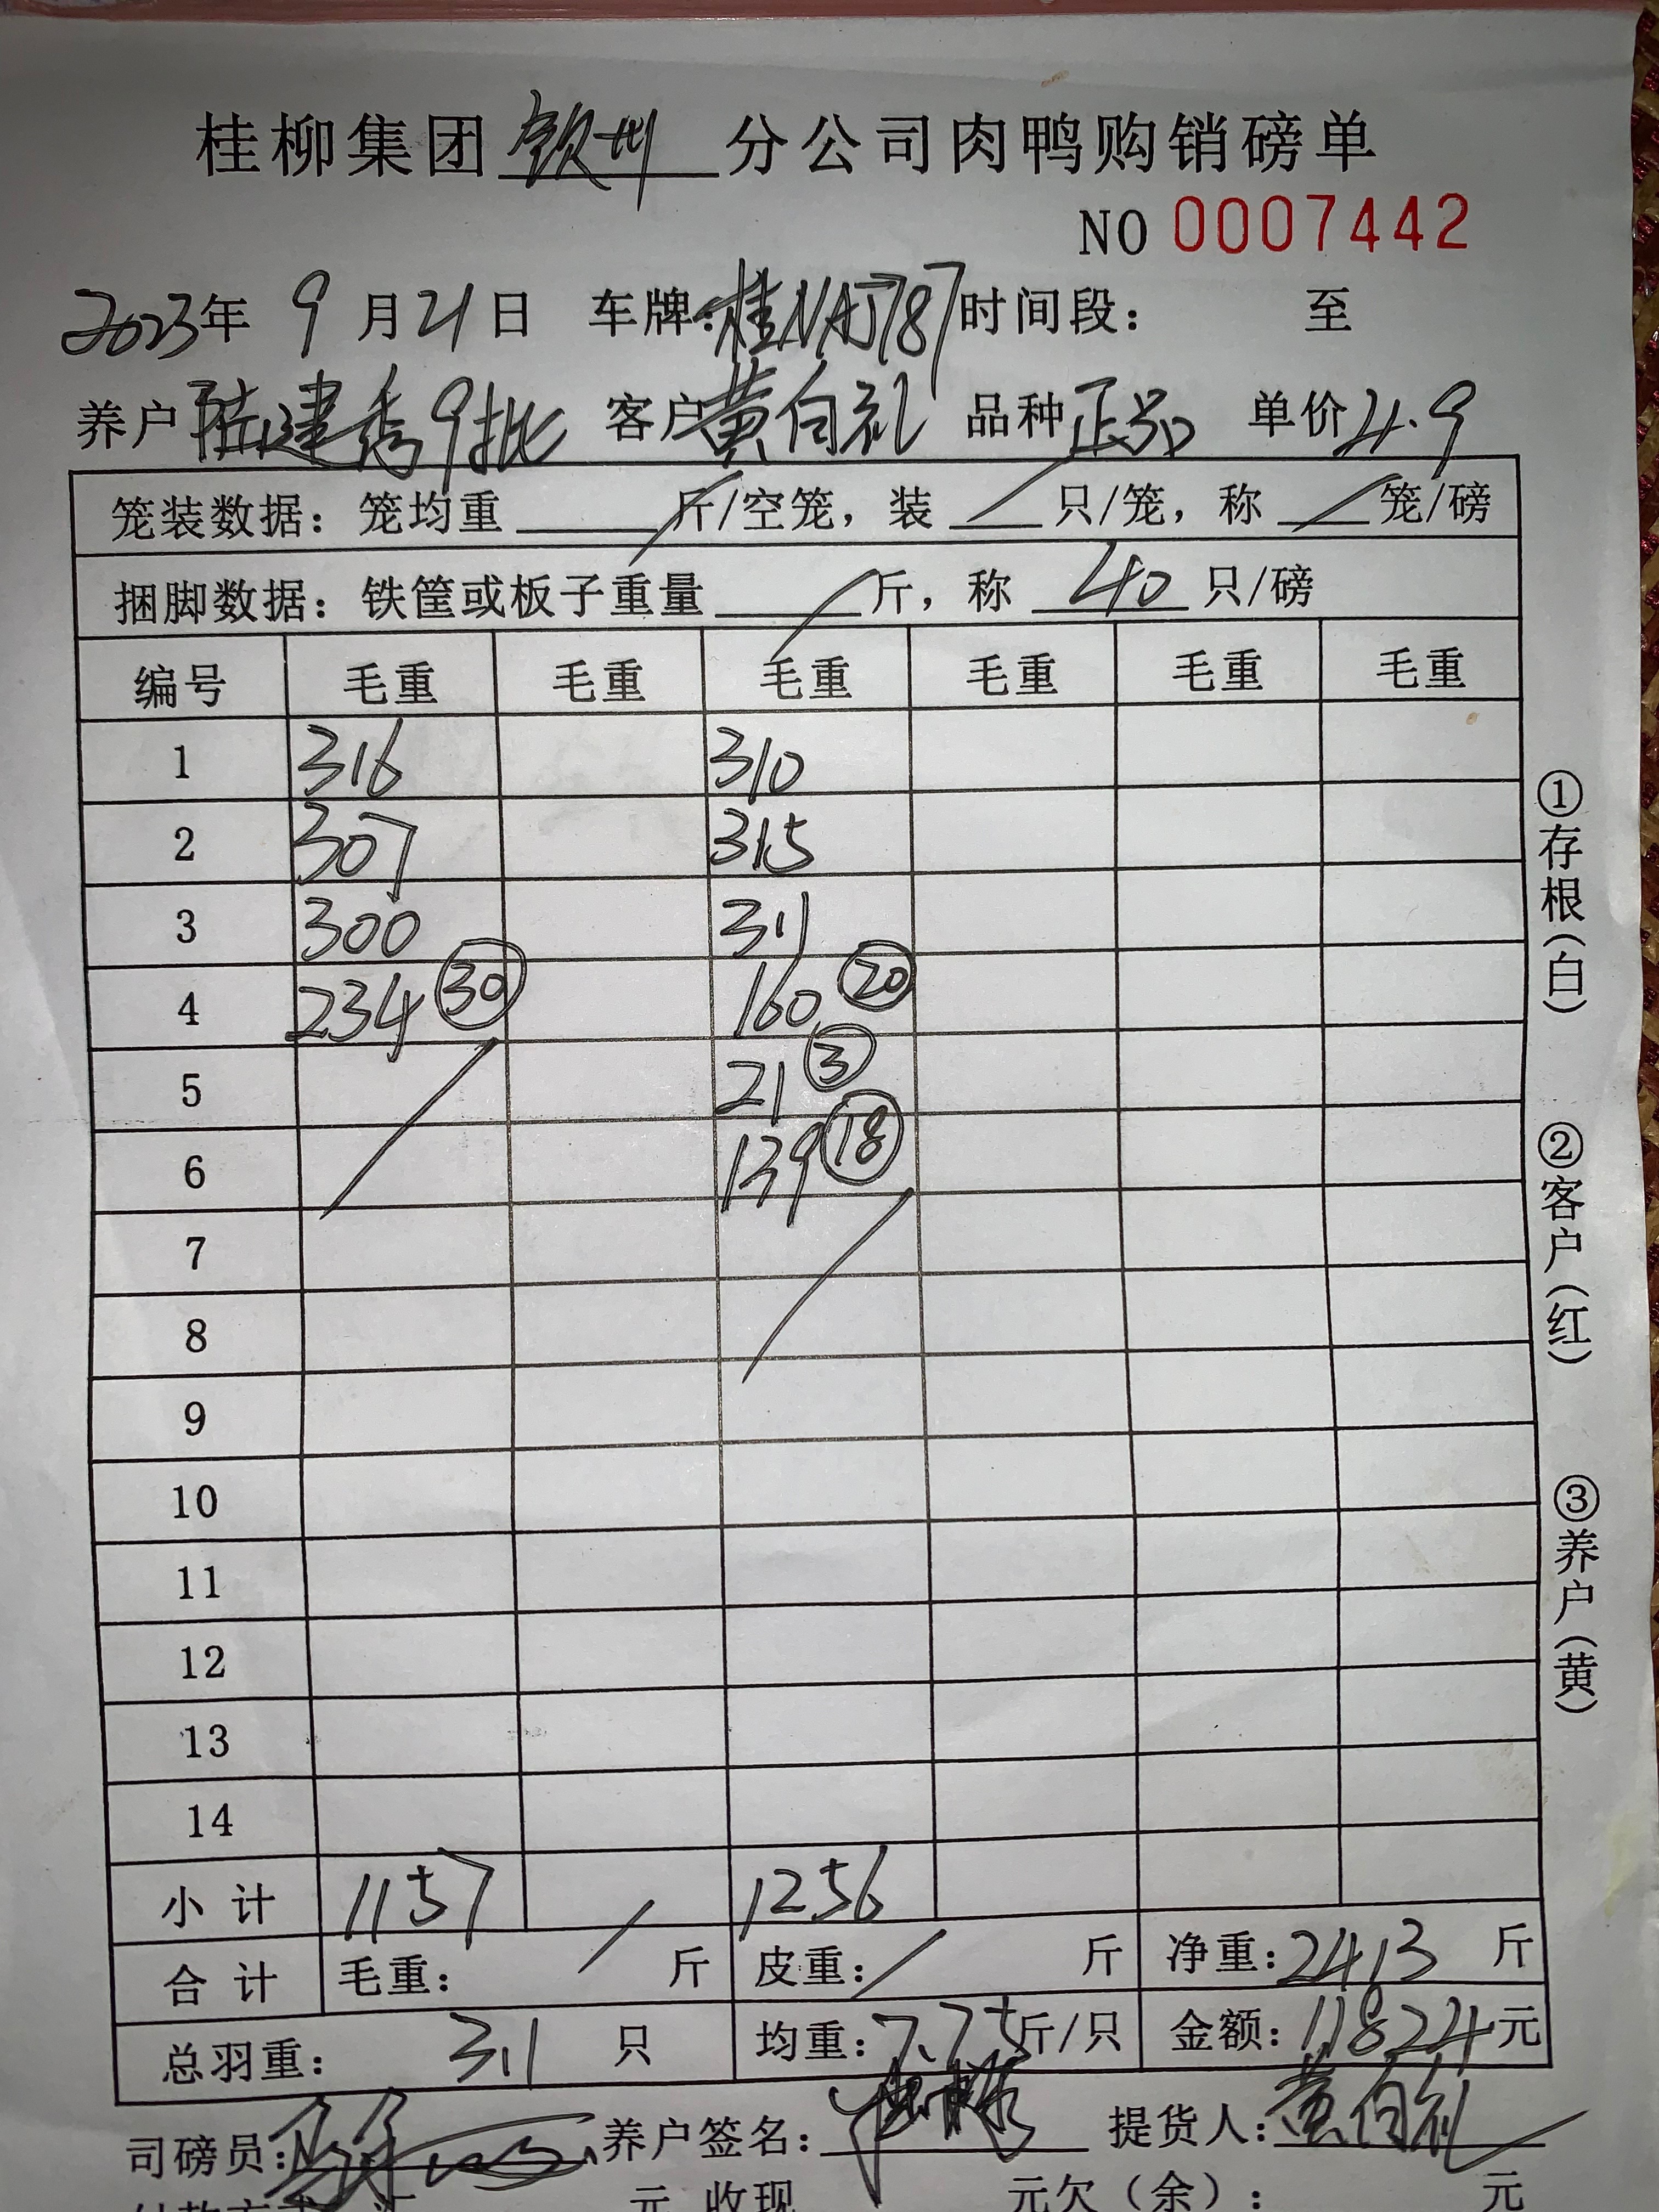 桂柳集团 钦州 分公司肉鸭购销磅单
NO 0007442
2023年 9 月 21 日 车牌:桂NAJ787 时间段: 至
养户 陆建秀9批 客户 黄向礼 品种 正品 单价 4.9
笼装数据: 笼均重 / 斤/空笼, 装 / 只/笼, 称 / 笼/磅
捆脚数据: 铁筐或板子重量 / 斤, 称 40 只/磅
编号 毛重 毛重 毛重 毛重 毛重 毛重
1 316 310
2 307 315
3 300 311
4 234 ㉚ 160 ⑳
5 21 ③
6 139 ⑱
7
8
9
10
11
12
13
14
小计 1157 / 1256
合计 毛重: / 斤 皮重: / 斤 净重: 2413 斤
总羽重: 311 只 均重: 7.75 斤/只 金额: 11824 元
司磅员: 养户签名: 提货人: 黄向礼
元 收现 元欠(余): 元
①存根(白)
②客户(红)
③养户(黄)